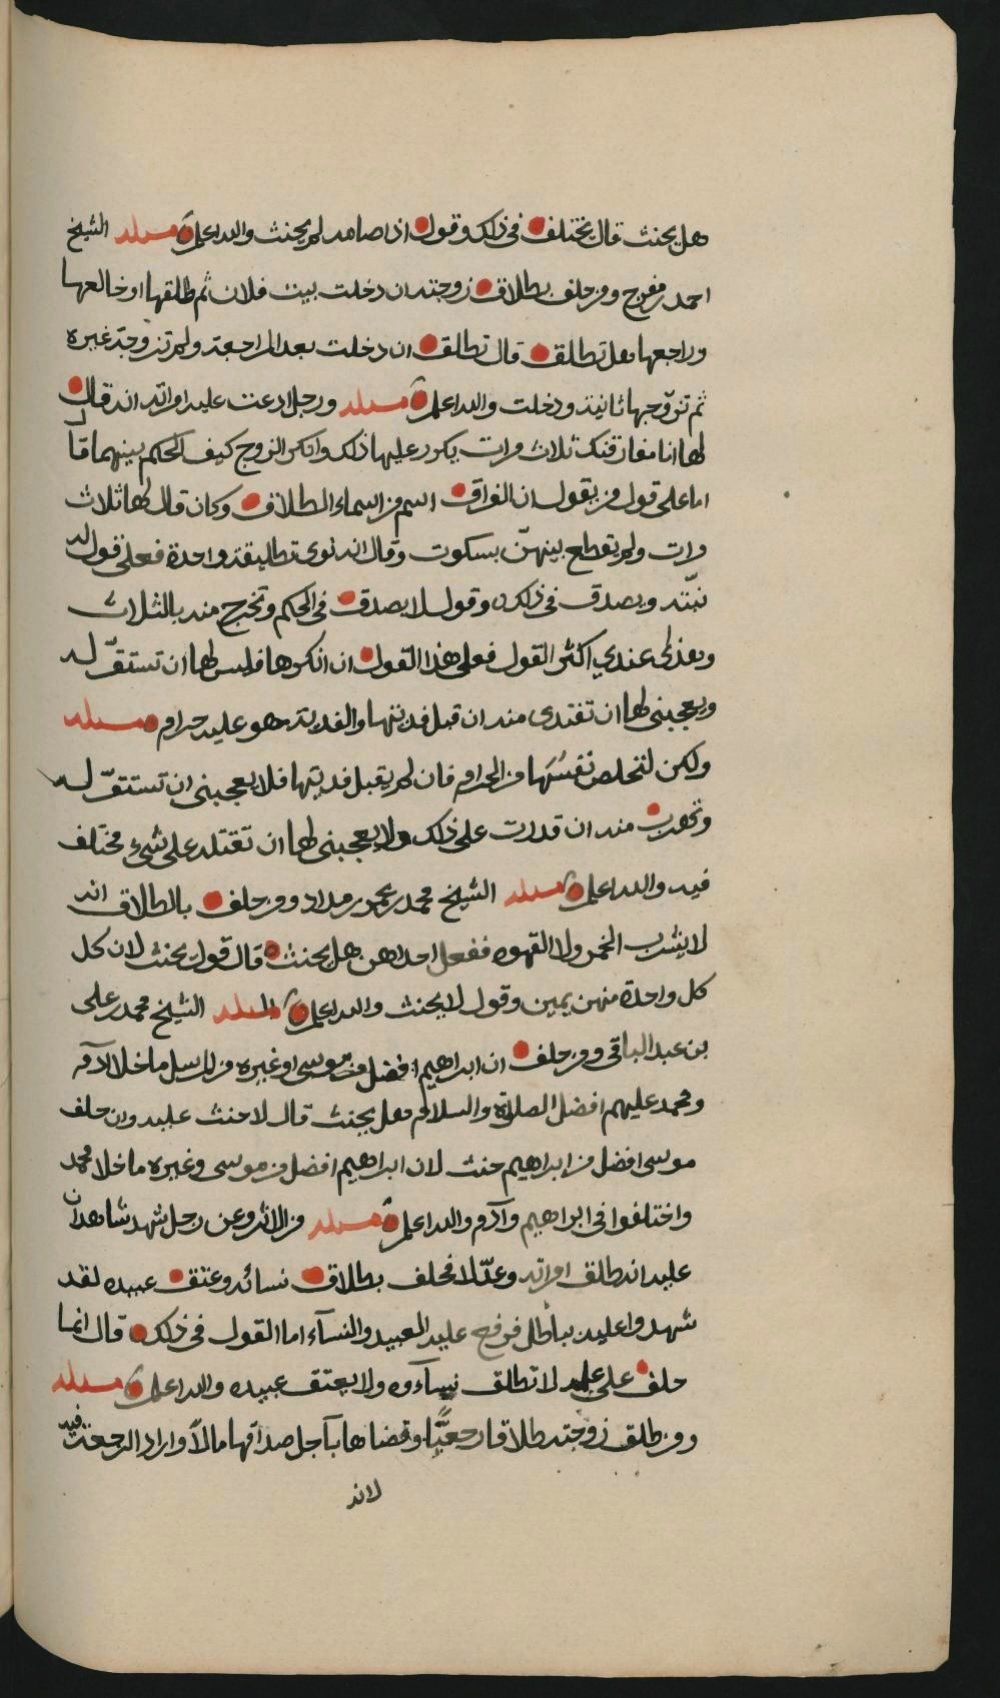 هل يحنث قال يختلف في ذلك وقول اذا صامه لم يحنث والله اعلم مسئله الشيخ
احمد بن مفرح ومن حلف بطلاق زوجته ان دخلت بيت فلان ثم طلقها او خالعها
وراجعها هل تطلق قال تطلق ان دخلت بعد المراجعة ولو تزوجت غيره
ثم تزوجها ثانية ودخلت والله اعلم مسئله ورجل ادعت عليه امراته انه قال
لها انا مفارقنك ثلاث مرات يكرر عليها ذلك وانكر الزوج كيف الحكم بينهما قال
اما على قول من يقول ان الفراق اسم من اسماء الطلاق وكان قال لها ثلاث
مرات ولم يقطع بينهن بسكوت وقال انه نوى تطليقة واحدة فعلى قول له
نيته ويصدق في ذلك وقول لا يصدق في الحكم وتخرج منه بالثلاث
وهذا عندي اكثر القول فعلى هذا القول ان انكرها فليس لها ان تستقر له
ويعجبني لها ان تفتدى منه ان قبل فديتها والفدية هو عليه حرام مسئله
ولكن لتخلص نفسها من الحرام فان لم يقبل فديتها فلا يعجبني ان تستقر له
وتهرب منه ان قدرت على ذلك ولا يعجبني لها ان تقتله على شيء مختلف
فيه والله اعلم مسئله الشيخ محمد بن عمر بن مداد ومن حلف بالطلاق انه
لا يشرب الخمر ولا القهوه ففعل احداهن هل يحنث قال قول يحنث لان كل
كل واحدة منهن يمين وقول لا يحنث والله اعلم مسئله الشيخ محمد بن على
بن عبد الباقي ومن حلف ان ابراهيم افضل من موسى او غيره من الرسل ما خلا آدم
ومحمد عليهم افضل الصلاة والسلام هل يحنث قال لا حنث عليه وان حلف
موسى افضل من ابراهيم حنث لان ابراهيم افضل من موسى وغيره ما خلا محمد
واختلفوا في ابراهيم وآدم والله اعلم مسئله من الاثر وعن رجل شهد شاهدان
عليه انه طلق امراته وعدلا فحلف بطلاق نسائه وعتق عبيده لقد
شهدوا عليه بباطل فرفع عليه العبيد والنسآء اما القول في ذلك قال انما
حلف على علمه لا تطلق نسآءوه ولا يعتق عبيده والله اعلم مسئله
ومن طلق زوجته طلاقا رجعيًّا وقضاها بآجل صداقها مالاً واراد الرجعة فيه
لانه